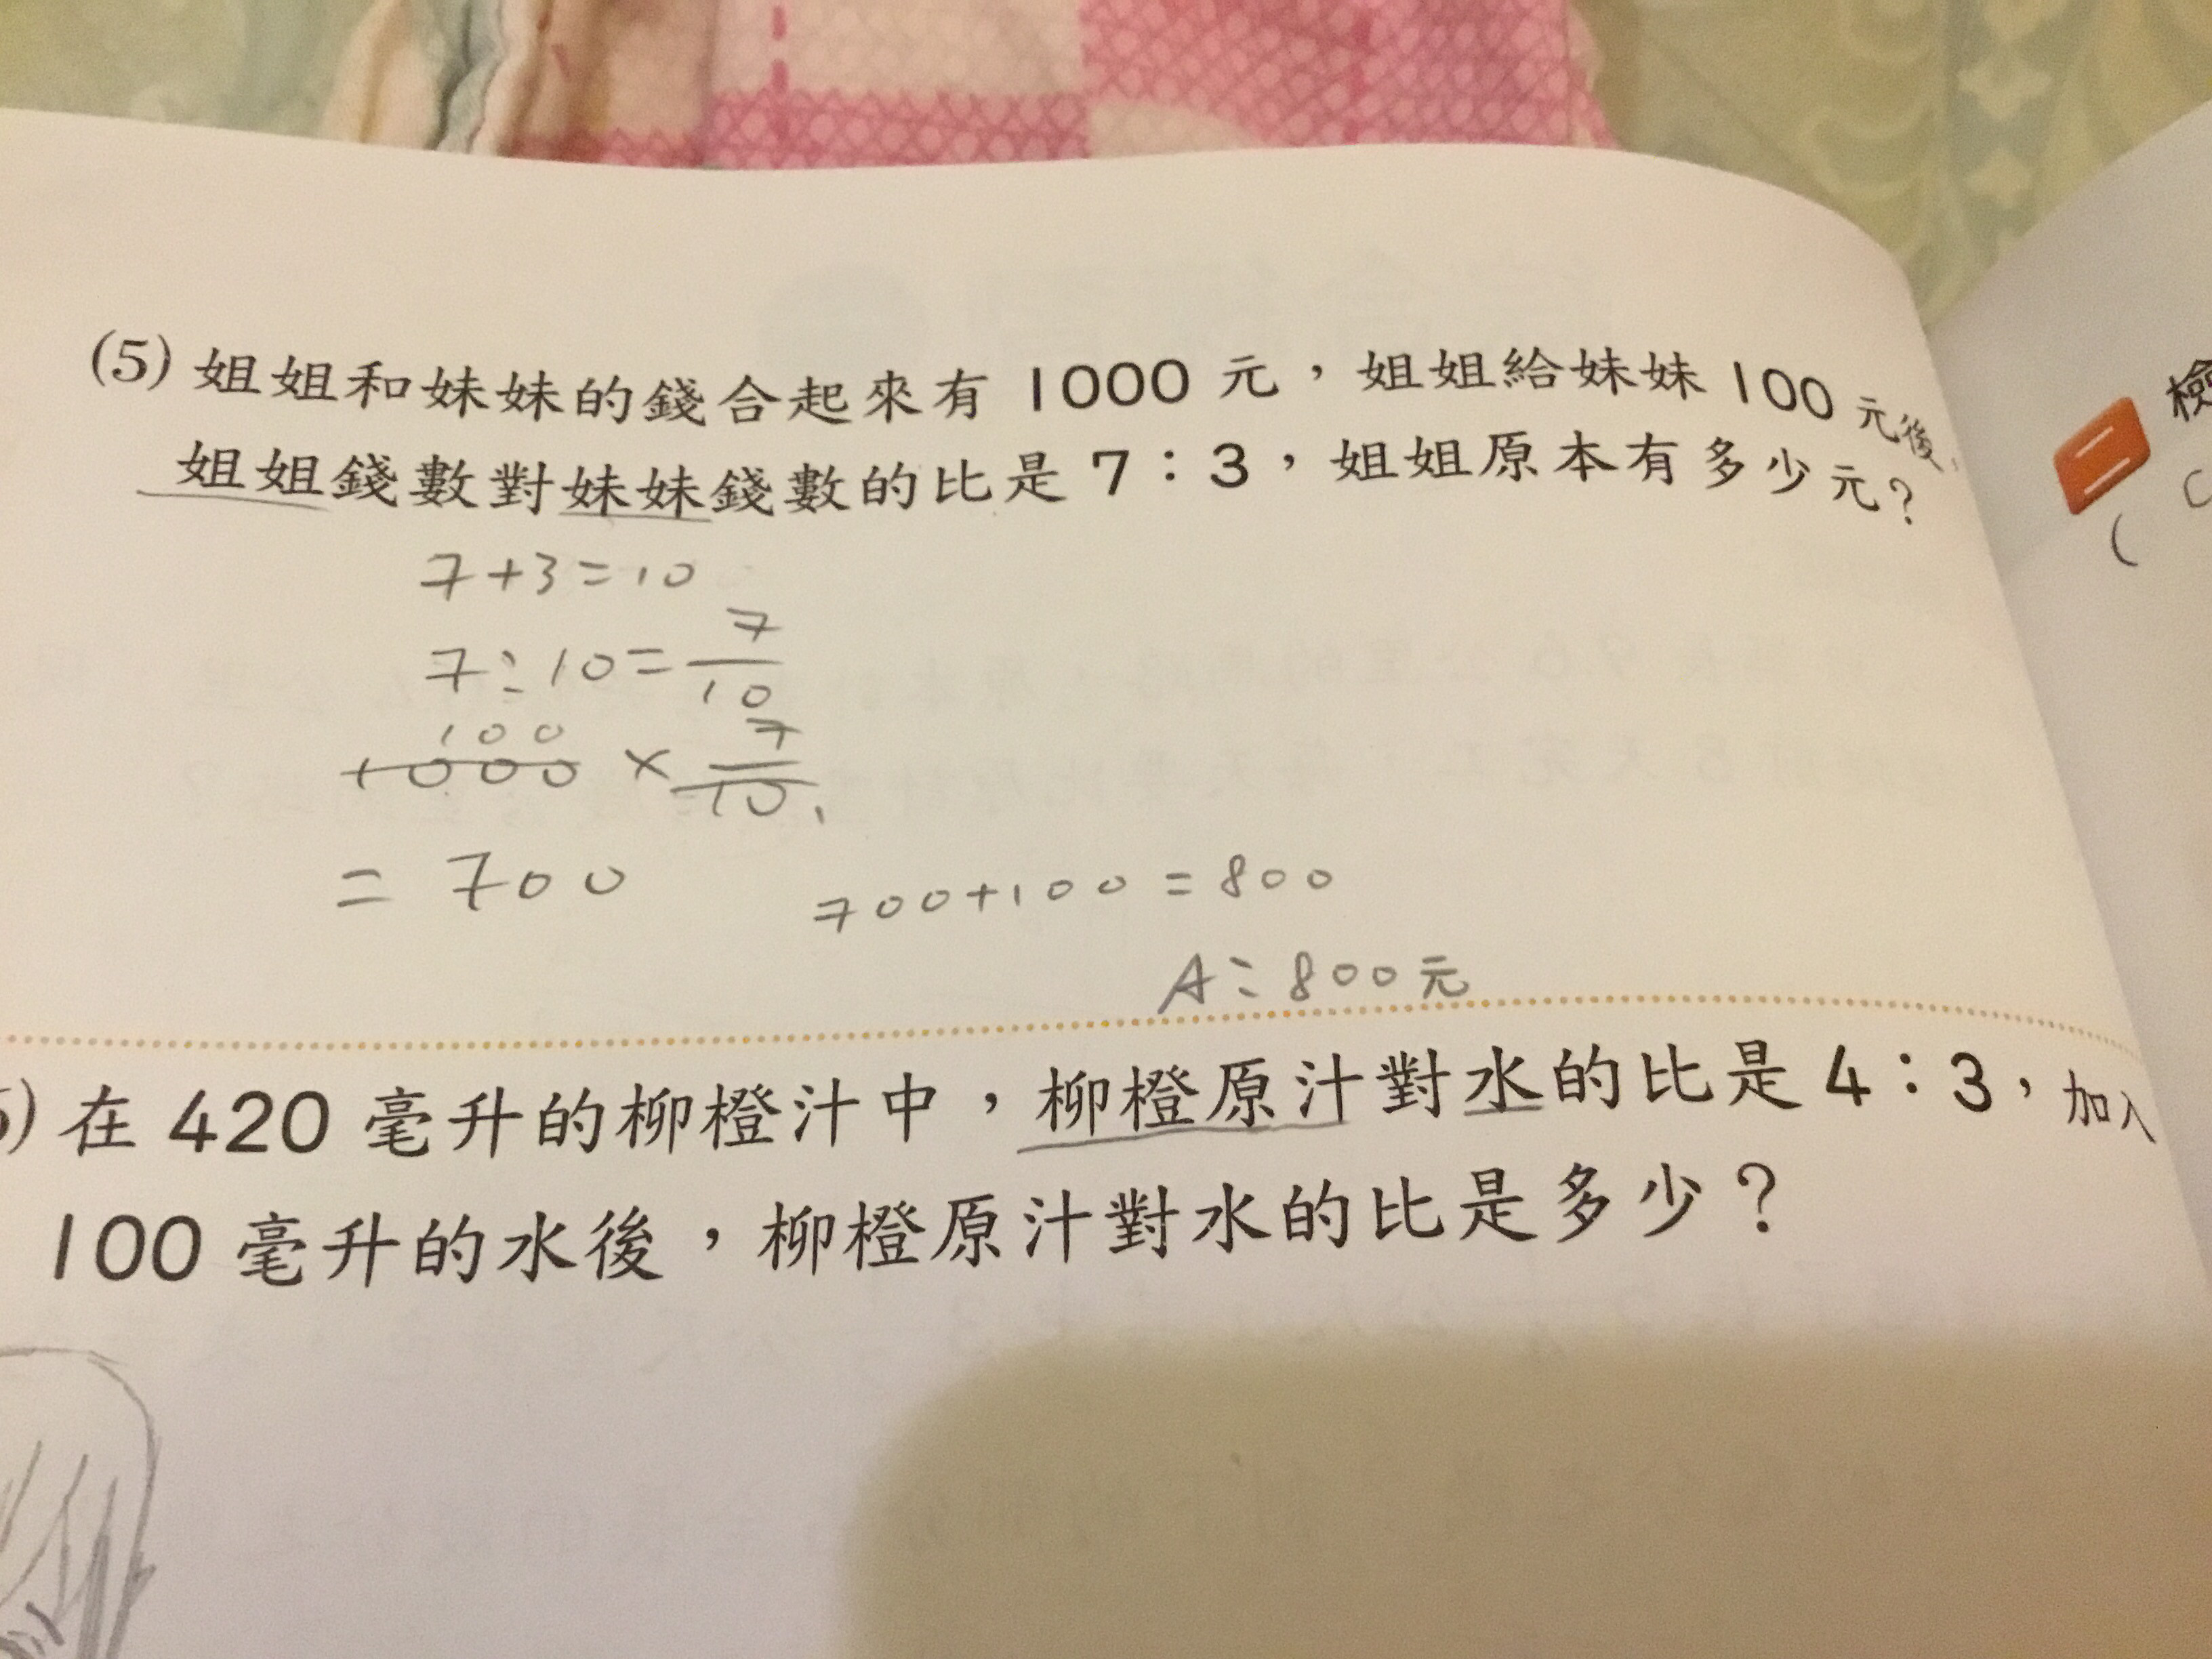 (5) 姐姐和妹妹的錢合起來有 1000 元，姐姐給妹妹 100 元後，
姐姐錢數對妹妹錢數的比是 7：3，姐姐原本有多少元？
7+3=10
7÷10=7/10
100
1000 × 7/10 1
= 700
700+100=800
A：800元
) 在 420 毫升的柳橙汁中，柳橙原汁對水的比是 4：3，加入
100 毫升的水後，柳橙原汁對水的比是多少？
二
(